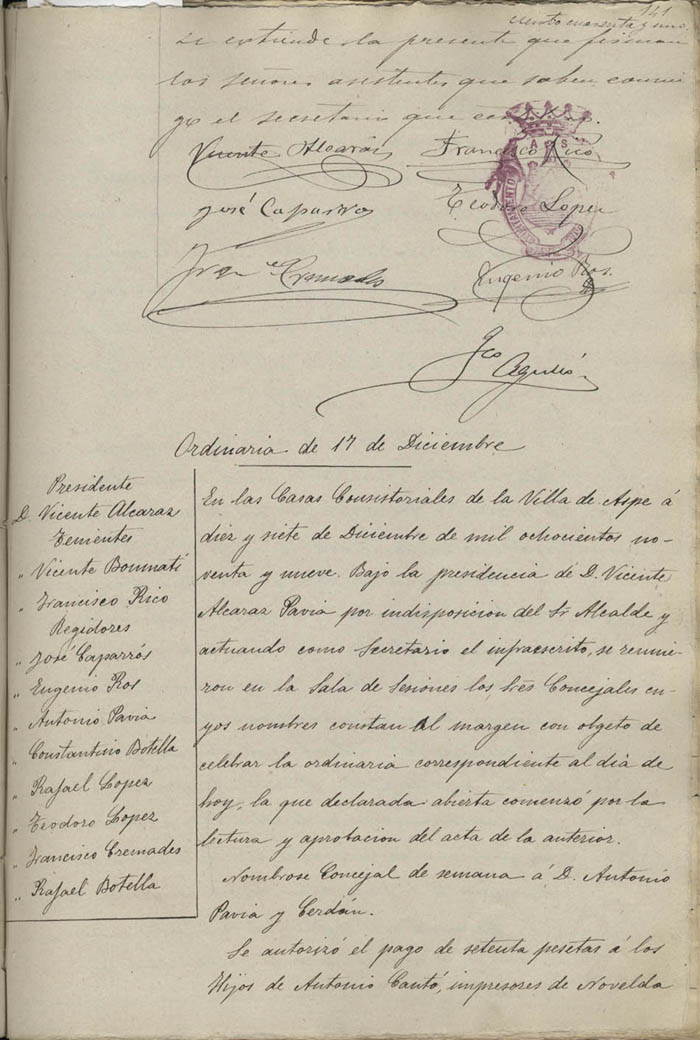 141
ciento cuarenta y uno.
se estiende la presente que firman
los señores asistentes que saben conmi
go el secretario que certifico.
Vicente Alcaráz
Francisco Rico
José Caparrós
Teodoro Lopez
Fran.co Cremades
Eugenio Ros.
AYUNTAMIENTO
Fco Agulló
Ordinaria de 17 de Diciembre
Presidente
D. Vicente Alcaraz
Tenientes
" Vicente Bonmatí
" Francisco Rico
Regidores
" José Caparrós
" Eugenio Ros
" Antonio Pavia
" Constantino Botella
" Rafael Lopez
" Teodoro Lopez
" Francisco Cremades
" Rafael Botella
En las Casas Consistoriales de la Villa de Aspe á
diez y siete de Diciembre de mil ochocientos no-
venta y nueve. Bajo la presidencia de D. Vicente
Alcaraz Pavia por indisposicion del Sr Alcalde y
actuando como Secretario el infraescrito, se reunie-
ron en la Sala de Sesiones los Sres Concejales cu-
yos nombres constan al margen con obgeto de
celebrar la ordinaria correspondiente al dia de
hoy, la que declarada abierta comenzó por la
lectura y aprobacion del acta de la anterior.
Nombrose Concejal de semana á D. Antonio
Pavia y Cerdán.
Se autorizó el pago de setenta pesetas á los
Hijos de Antonio Cantó, impresores de Novelda